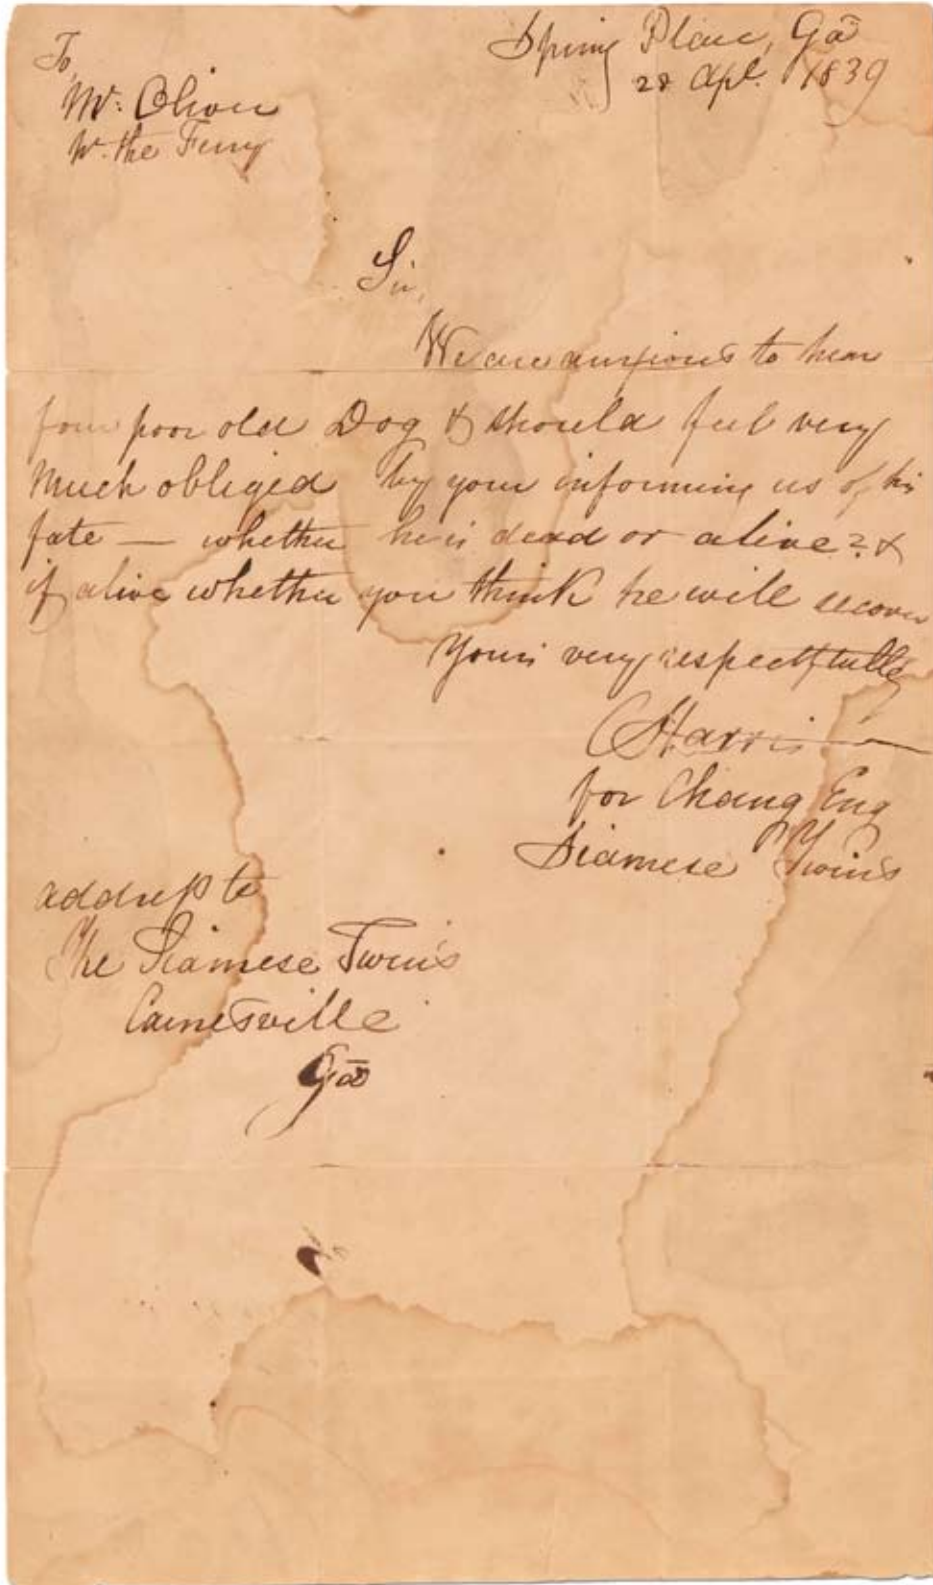 Spring Place, Ga
28 Apl. 1839
To,
Mr. Oliver
the Ferry
Sir,
We are anxious to hear
poor old Dog & should feel very
much obliged by your informing us of his
fate — whether he is dead or alive? &
if alive whether you think he will recover
Yours very respectfully
C Harris
for Chang Eng
Siamese Twins
address to
The Siamese Twins
Carnesville
Ga